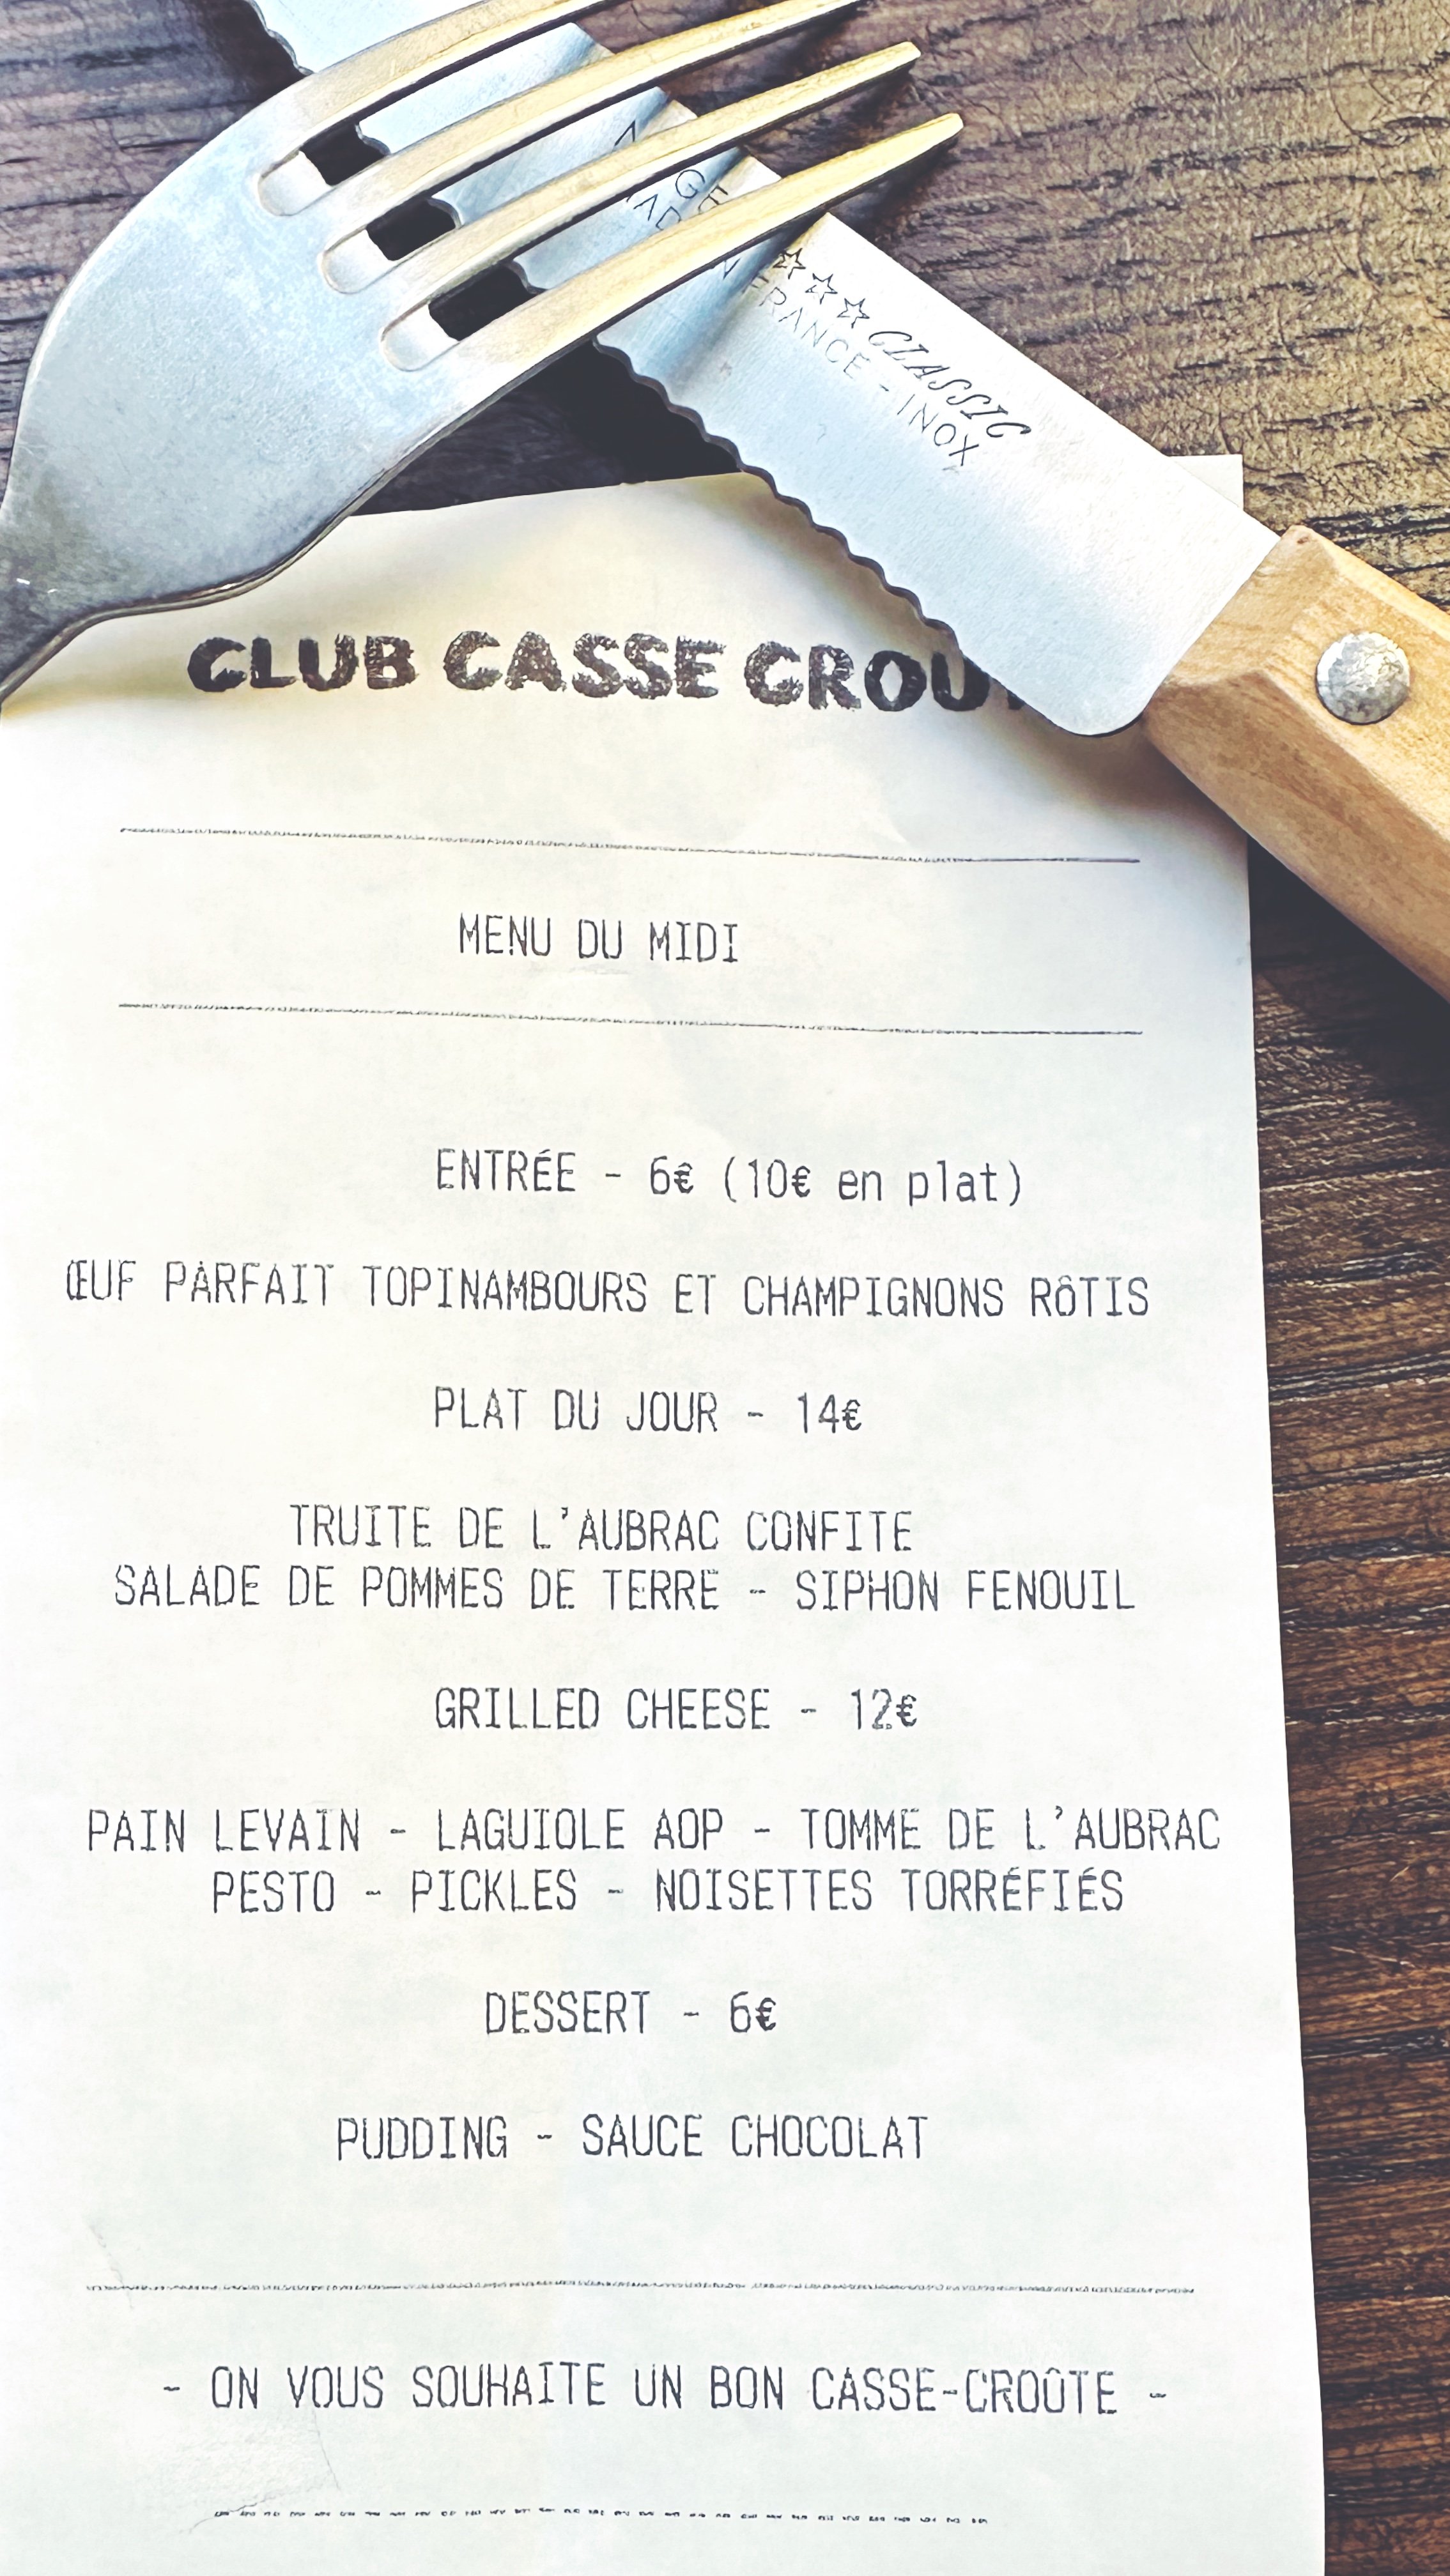 ☆☆☆ CLASSIC
FRANCE - INOX
CLUB CASSE
MENU DU MIDI
ENTRÉE - 6€ (10€ en plat)
ŒUF PARFAIT TOPINAMBOURS ET CHAMPIGNONS RôTIS
PLAT DU JOUR - 14€
TRUITE DE L'AUBRAC CONFITE
SALADE DE POMMES DE TERRE - SIPHON FENOUIL
GRILLED CHEESE - 12€
PAIN LEVAIN - LAGUIOLE AOP - TOMME DE L'AUBRAC
PESTO - PICKLES - NOISETTES TORRÉFIÉS
DESSERT - 6€
PUDDING - SAUCE CHOCOLAT
- ON VOUS SOUHAITE UN BON CASSE-CROÛTE -